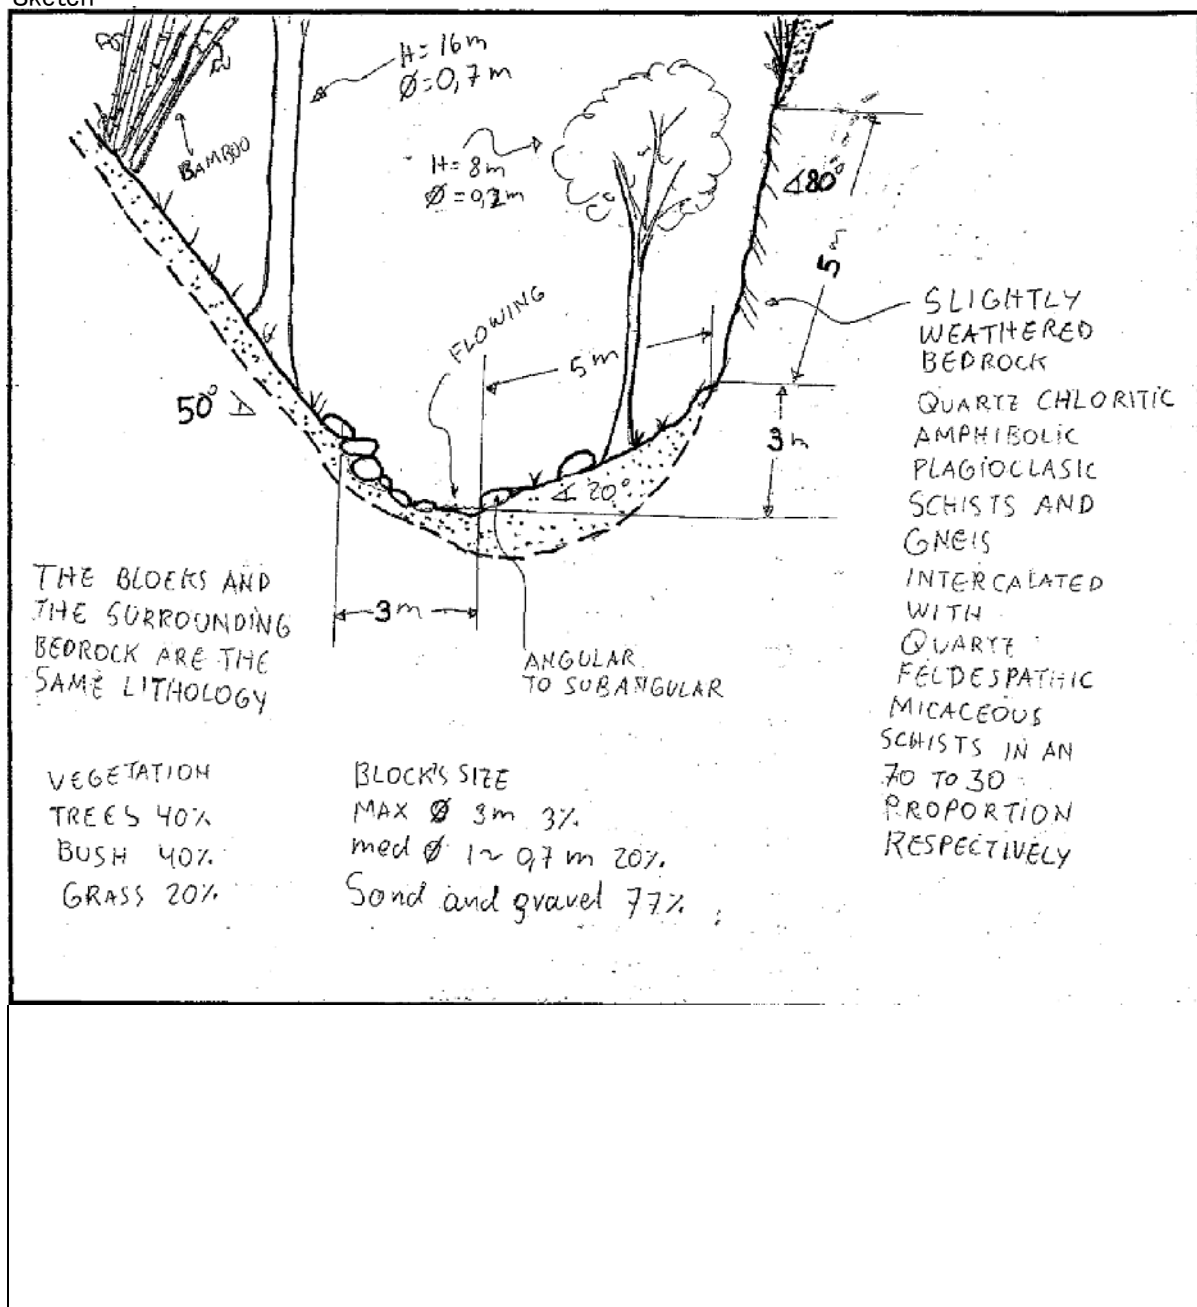 Sketch
H= 16m
Ø=0,7m
BAMBOO
H= 8m
Ø=0,2m
∡80°
5m
FLOWING
5m
SLIGHTLY
WEATHERED
BEDROCK
QUARTZ CHLORITIC
AMPHIBOLIC
PLAGIOCLASIC
SCHISTS AND
GNEIS
INTERCALATED
WITH
QUARTZ
FELDESPATHIC
MICACEOUS
SCHISTS IN AN
70 TO 30
PROPORTION
RESPECTIVELY
50°
3m
∡ 20°
THE BLOCKS AND
THE SURROUNDING
BEDROCK ARE THE
SAME LITHOLOGY
3m
ANGULAR
TO SUBANGULAR
VEGETATION
TREES 40%
BUSH 40%
GRASS 20%
BLOCK'S SIZE
MAX Ø 3m 3%
med Ø 1~0,7m 20%
Sand and gravel 77%